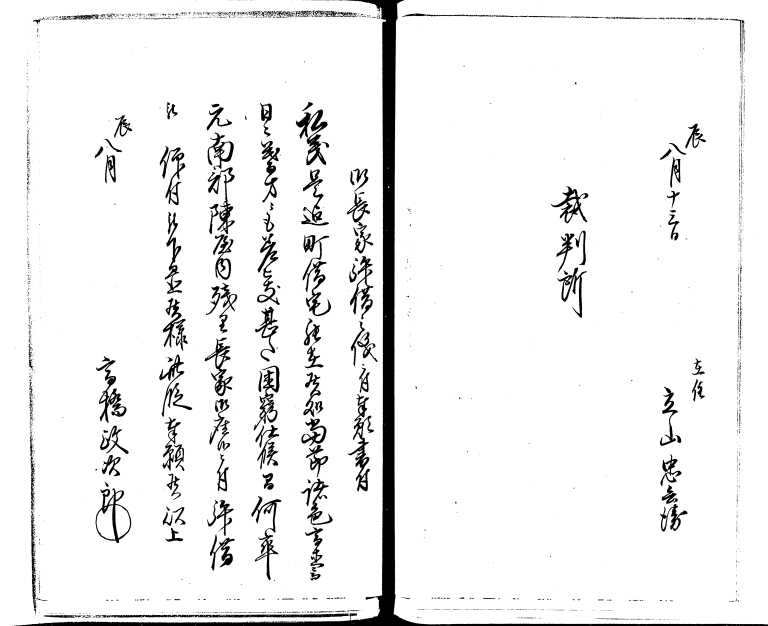 辰
八月十三日
在住
立山忠兵衛
裁判所
御長家拝借之儀ニ付奉願書付
私義是迄町借宅罷在候処当節諸色高直
日々暮方ニも差支甚以困窮仕候間何卒
元南部陳屋内残り長家御座候ニ付拝借
被仰付被下置候様此段奉願候以上
辰
八月
高橋政次郎